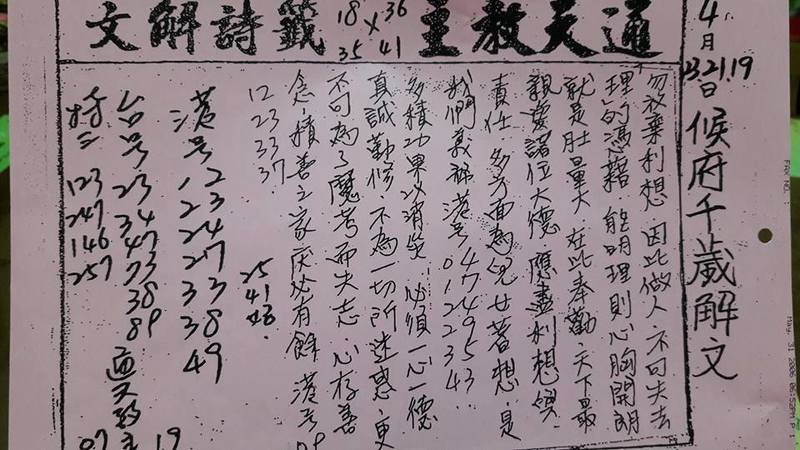 通天教主籤詩解文
18 36
×
35 41
4月
13.21.19
日
候府千歲解文
勿放棄利想.因此做人.不可失去
理的憑藉.能明理則心胸開朗
就是肚量大.在此奉勸.天下最
親愛諸位大德.應盡利想與
責任.多方面為兒女著想.是
我們義務港号 47 74 49 35
01 22 23 43
多積功果以消災 必須一心一德
真誠勤修.不為一切所迷惑.更
不可為了魔考而失志.心存善
念.積善之家庆必有餘.港号
09
12
23
33
37.
25
41
46.
港号
12
23
24
27
33
38
49
台号
23
34
47
73
38
89
123
247
146
257
07
19
FAX NO. :
May. 31 2006 06:52PM P 1